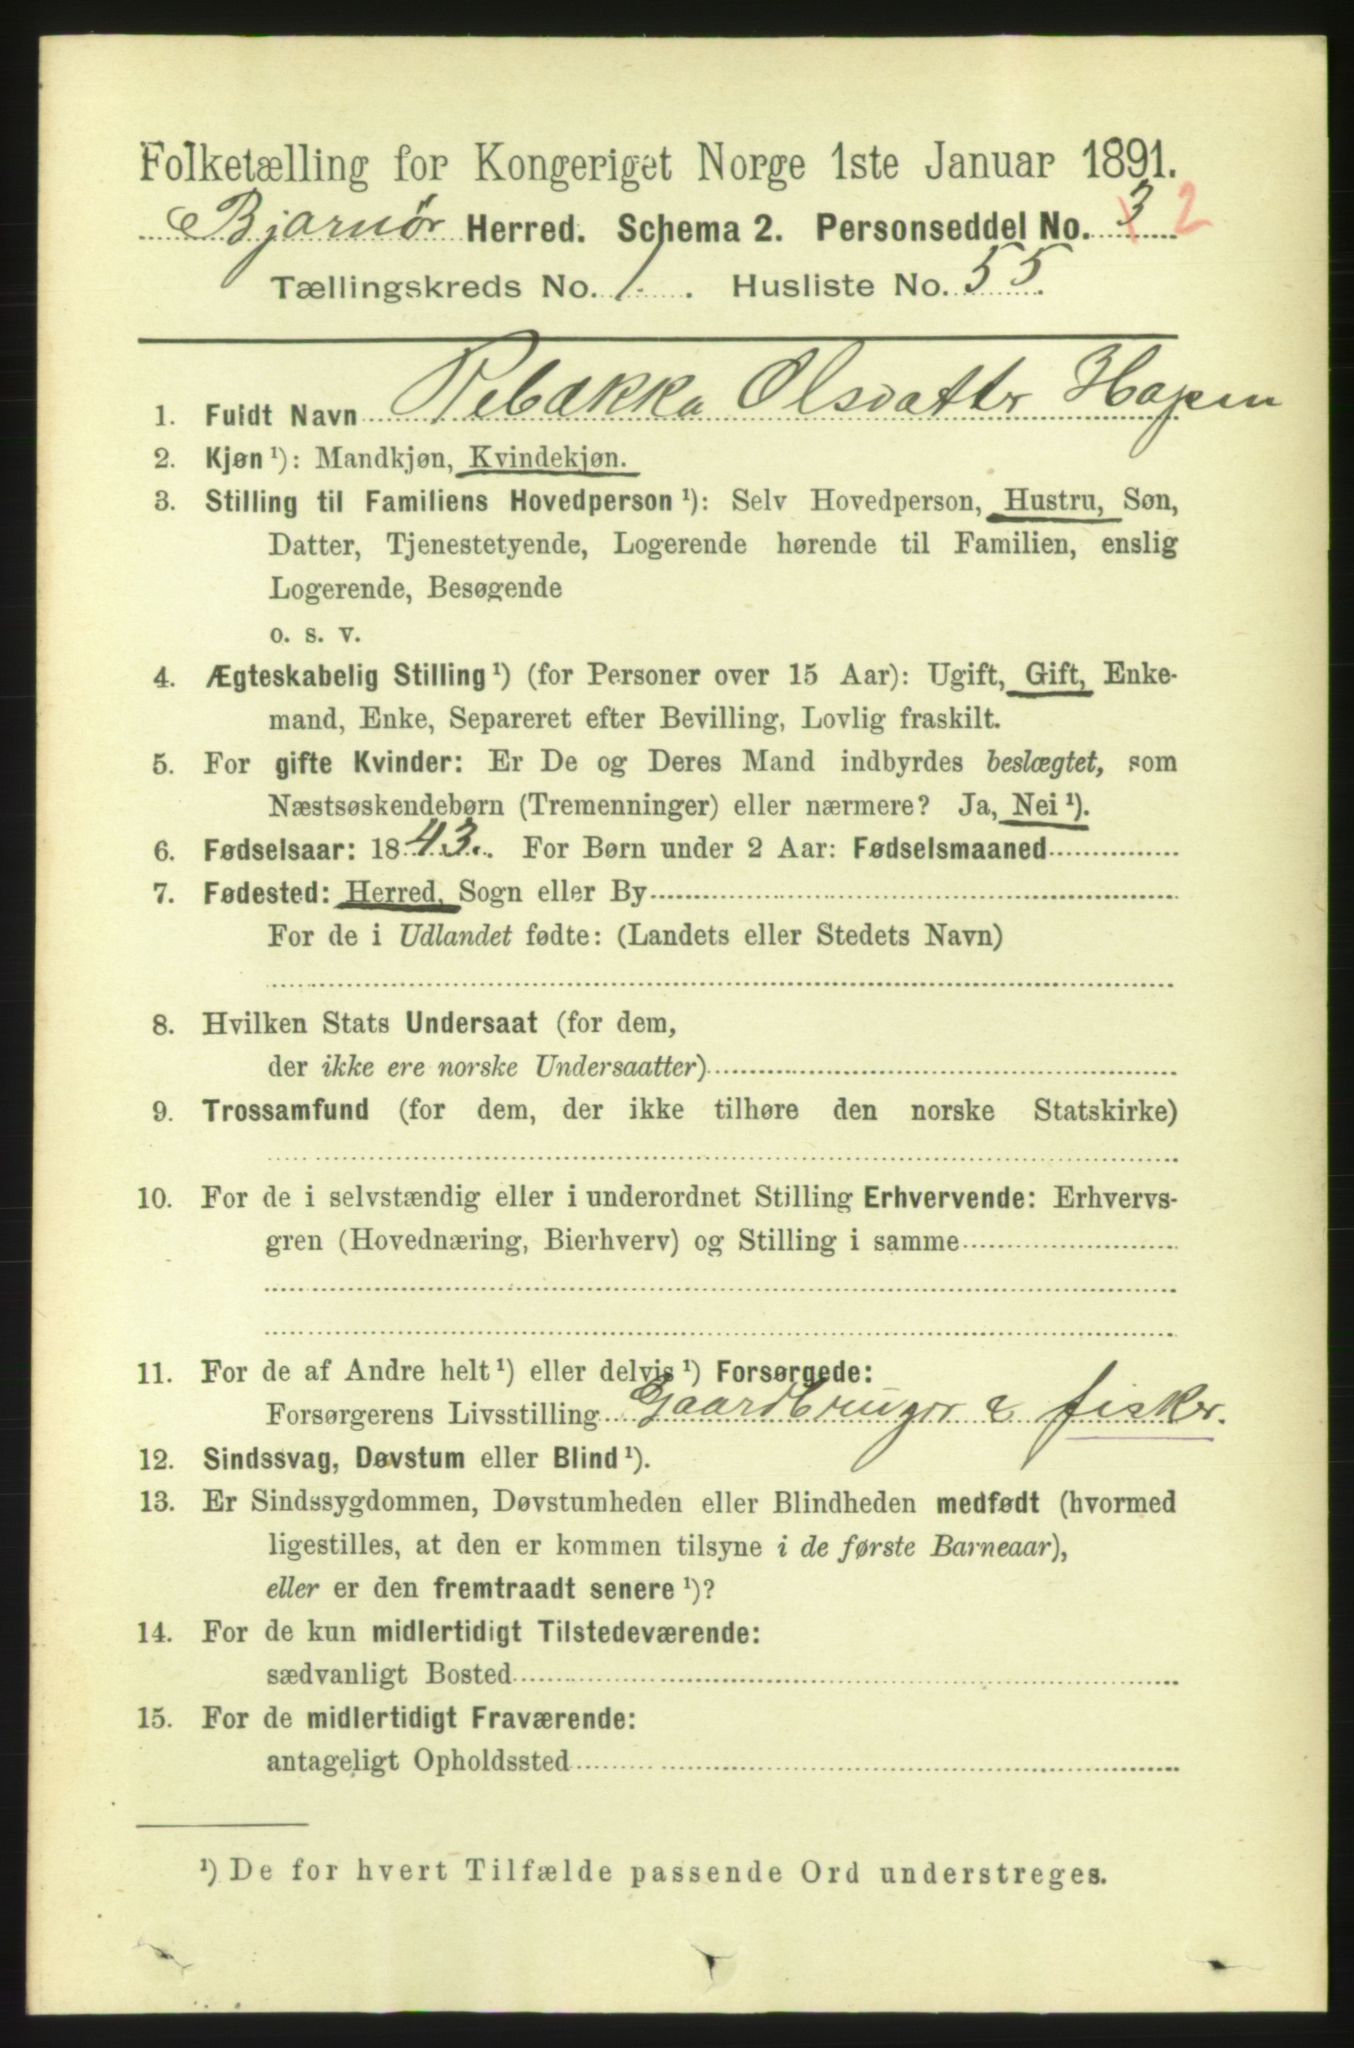 Folketælling for Kongeriget Norge 1ste Januar 1891.
Bjarnør Herred. Schema 2. Personseddel No. 3 2
Tællingskreds No. 1. Husliste No. 55
1. Fuldt Navn Rebækka Olsdatter Hagen
2. Kjøn ¹): Mandkjøn, Kvindekjøn.
3. Stilling til Familiens Hovedperson ¹): Selv Hovedperson, Hustru, Søn,
Datter, Tjenestetyende, Logerende hørende til Familien, enslig
Logerende, Besøgende
o. s. v.
4. Ægteskabelig Stilling ¹) (for Personer over 15 Aar): Ugift, Gift, Enke-
mand, Enke, Separeret efter Bevilling, Lovlig fraskilt.
5. For gifte Kvinder: Er De og Deres Mand indbyrdes beslægtet, som
Næstsøskendebørn (Tremenninger) eller nærmere? Ja, Nei ¹).
6. Fødselsaar: 1843. For Børn under 2 Aar: Fødselsmaaned
7. Fødested: Herred, Sogn eller By
For de i Udlandet fødte: (Landets eller Stedets Navn)
8. Hvilken Stats Undersaat (for dem,
der ikke ere norske Undersaatter)
9. Trossamfund (for dem, der ikke tilhøre den norske Statskirke)
10. For de i selvstændig eller i underordnet Stilling Erhvervende: Erhvervs-
gren (Hovednæring, Bierhverv) og Stilling i samme
11. For de af Andre helt ¹) eller delvis ¹) Forsørgede:
Forsørgerens Livsstilling Gaardbruger & fisker.
12. Sindssvag, Døvstum eller Blind ¹).
13. Er Sindssygdommen, Døvstumheden eller Blindheden medfødt (hvormed
ligestilles, at den er kommen tilsyne i de første Barneaar),
eller er den fremtraadt senere ¹)?
14. For de kun midlertidigt Tilstedeværende:
sædvanligt Bosted
15. For de midlertidigt Fraværende:
antageligt Opholdssted
¹) De for hvert Tilfælde passende Ord understreges.